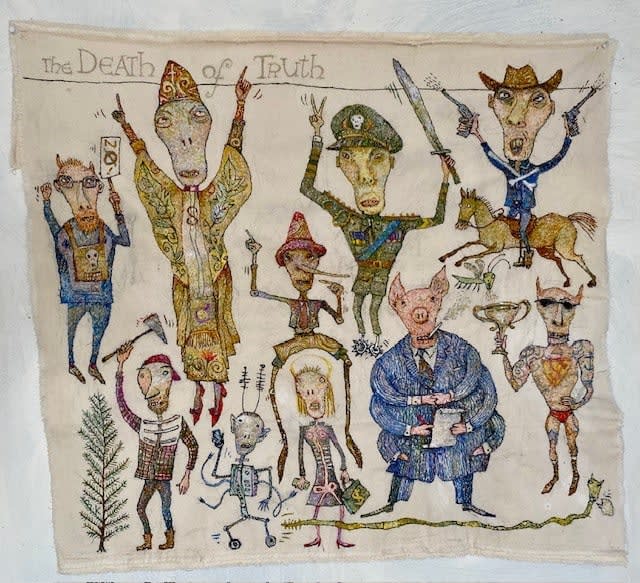 The DEATH of TRUTH
NO!